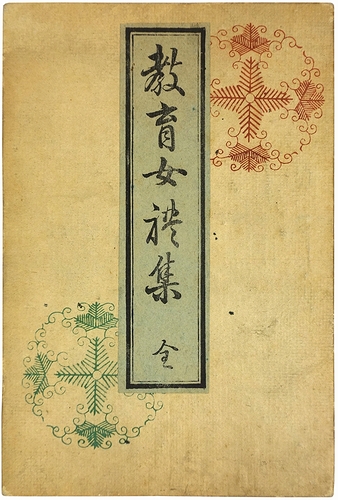 教育女禮集 全